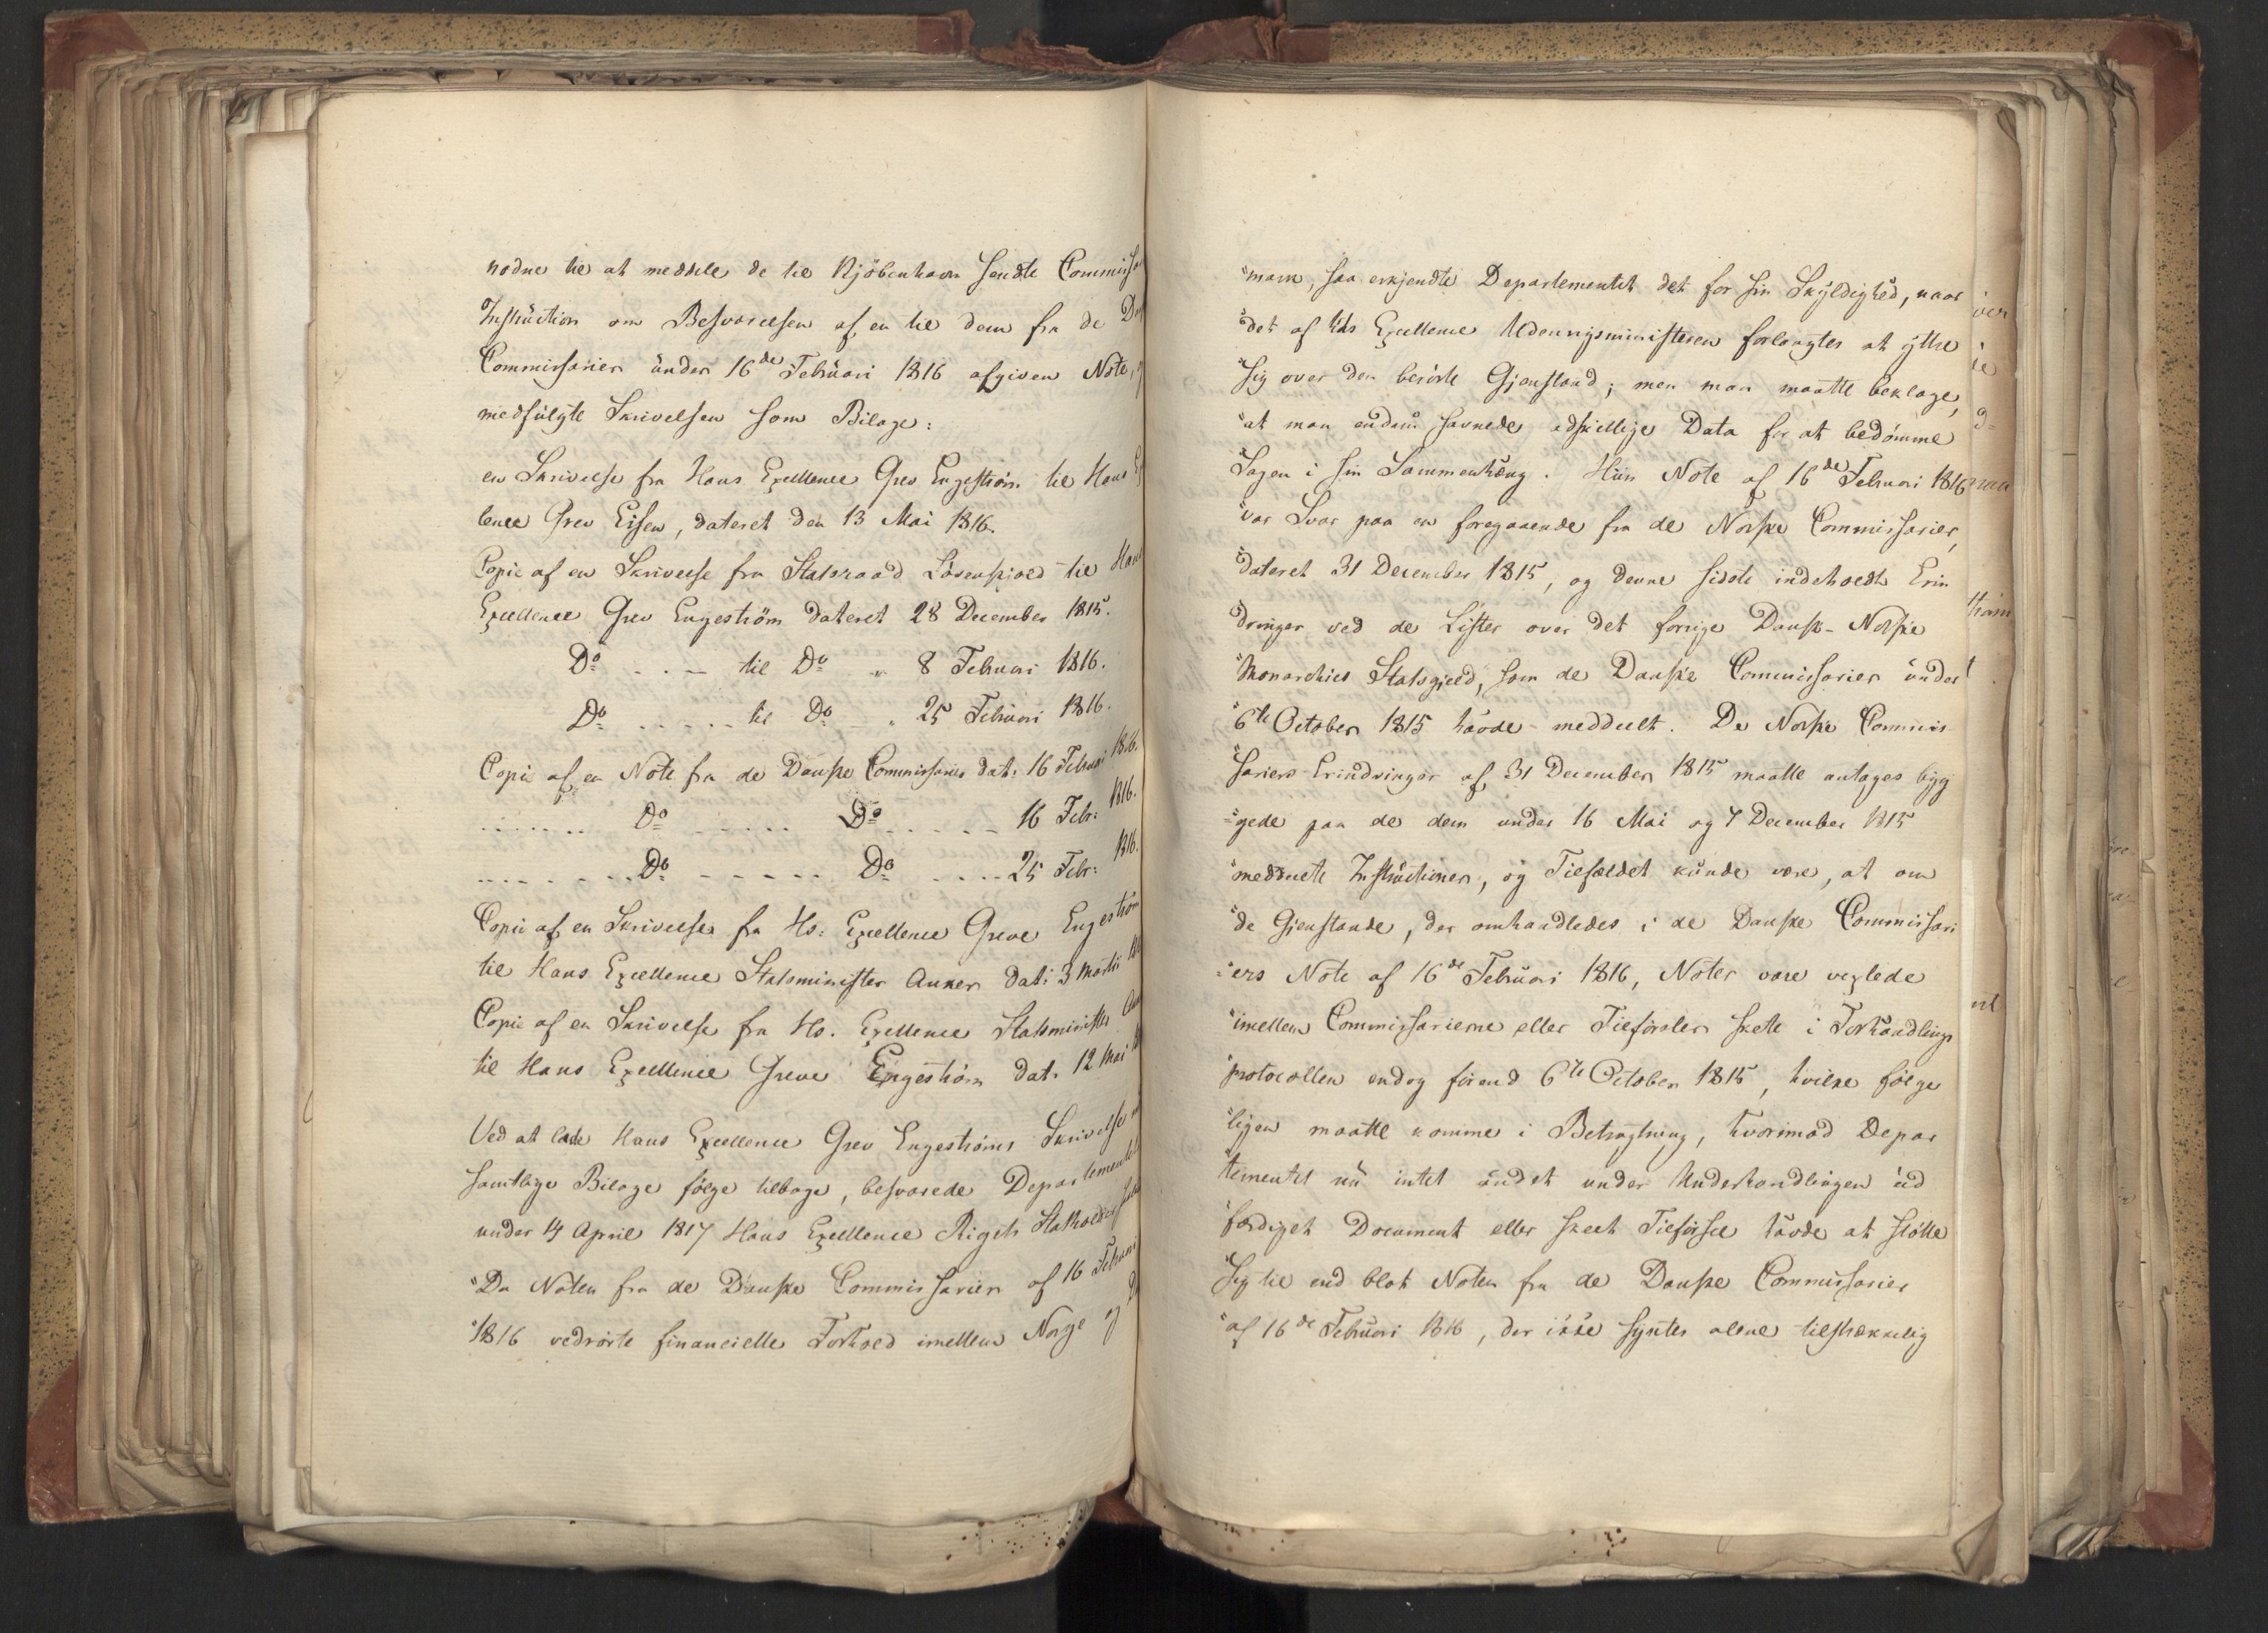 nødne til at meddele de til Kjöbenhavn sendte Commissa
Instruction om Besvarelsen af en til dem fra de Da
Commissarier under 16de Februari 1816 afgiven Note,
medfulgte Skrivelsen som Bilage:
en Skrivelse fra Hans Excellence Grev Engeström til Hans Ex
lence Grev Essen, dateret den 13 Mai 1816.
Copie af en Skrivelse fra Statsraad Lövenskiold til Hans
Excellence Grev Engeström dateret 28 December 1815.
Do . . – til Do „ 8 Februari 1816.
Do . . . . . til Do „ 25 Februari 1816.
Copie af en Note fra de Danske Commissarier dat: 16 Februari 1816.
. . . . . . . Do . . . . . Do . . . . . 16 Febr: 1816.
. . . . . . . Do . . . . . . Do . . . . 25 Febr: 1816.
Copie af en Skrivelse fra Hs: Excellence Greve Engeström
til Hans Excellence Statsminister Anker dat: 3 Martii
Copie af en Skrivelse fra Hs. Excellence Statsminister An
til Hans Excellence Greve Engeström dat. 12 Mai
Ved at lade Hans Excellence Grev Engeströms Skrivelse
samtlige Bilage følge tilbage, besvarede Departementet
under 14 April 1817 Hans Excellence Rigets Statholder
"Da Noten fra de Danske Commissarier af 16 Februari
"1816 vedrørte financielle Forhold imellem Norge og
"mark, saa erkjendte Departementet det for sin Skyldighed, naar
"det af Hds Excellence Udenrigsministeren forlangtes at yttre
"sig over den berørte Gjenstand; men man maatte beklage,
"at man endnu savnede adskillige Data for at bedömme
"Sagen i sin Sammenhæng. Hiin Note af 16de Februari 1816
"var Svar paa en foregaaende fra de Norske Commissarier,
"dateret 31 December 1815, og denne sidste indeholdt Erin
"dringer ved de Lister over det forrige Dansk-Norske
"Monarchies Statsgjeld, som de Danske Commissarier under
"6te October 1815 havde meddeelt. De Norske Commis
"sariers Erindringer af 31 December 1815 maatte antages byg
"gede paa de dem under 16 Mai og 7 December 1815
"meddeelte Instructioner, og Tilfældet kunde være, at om
"de Gjenstande, der omhandledes i de Danske Commissari
"ers Note af 16de Februari 1816, Noter vare vexlede
"imellem Commissarierne eller Tilførsler skete i Forhandlings
"protocollen endog førend 6te October 1815, hvilke følge
"ligen maatte komme i Betragtning, hvorimod Depar
"tementet nu intet andet under Underhandlingen ud
"færdiget Document eller skeet Tilførsel havde at støtte
"sig til end blot Noten fra de Danske Commissarier
"af 16de Februari 1816, der ikke syntes alene tilstrækkelig